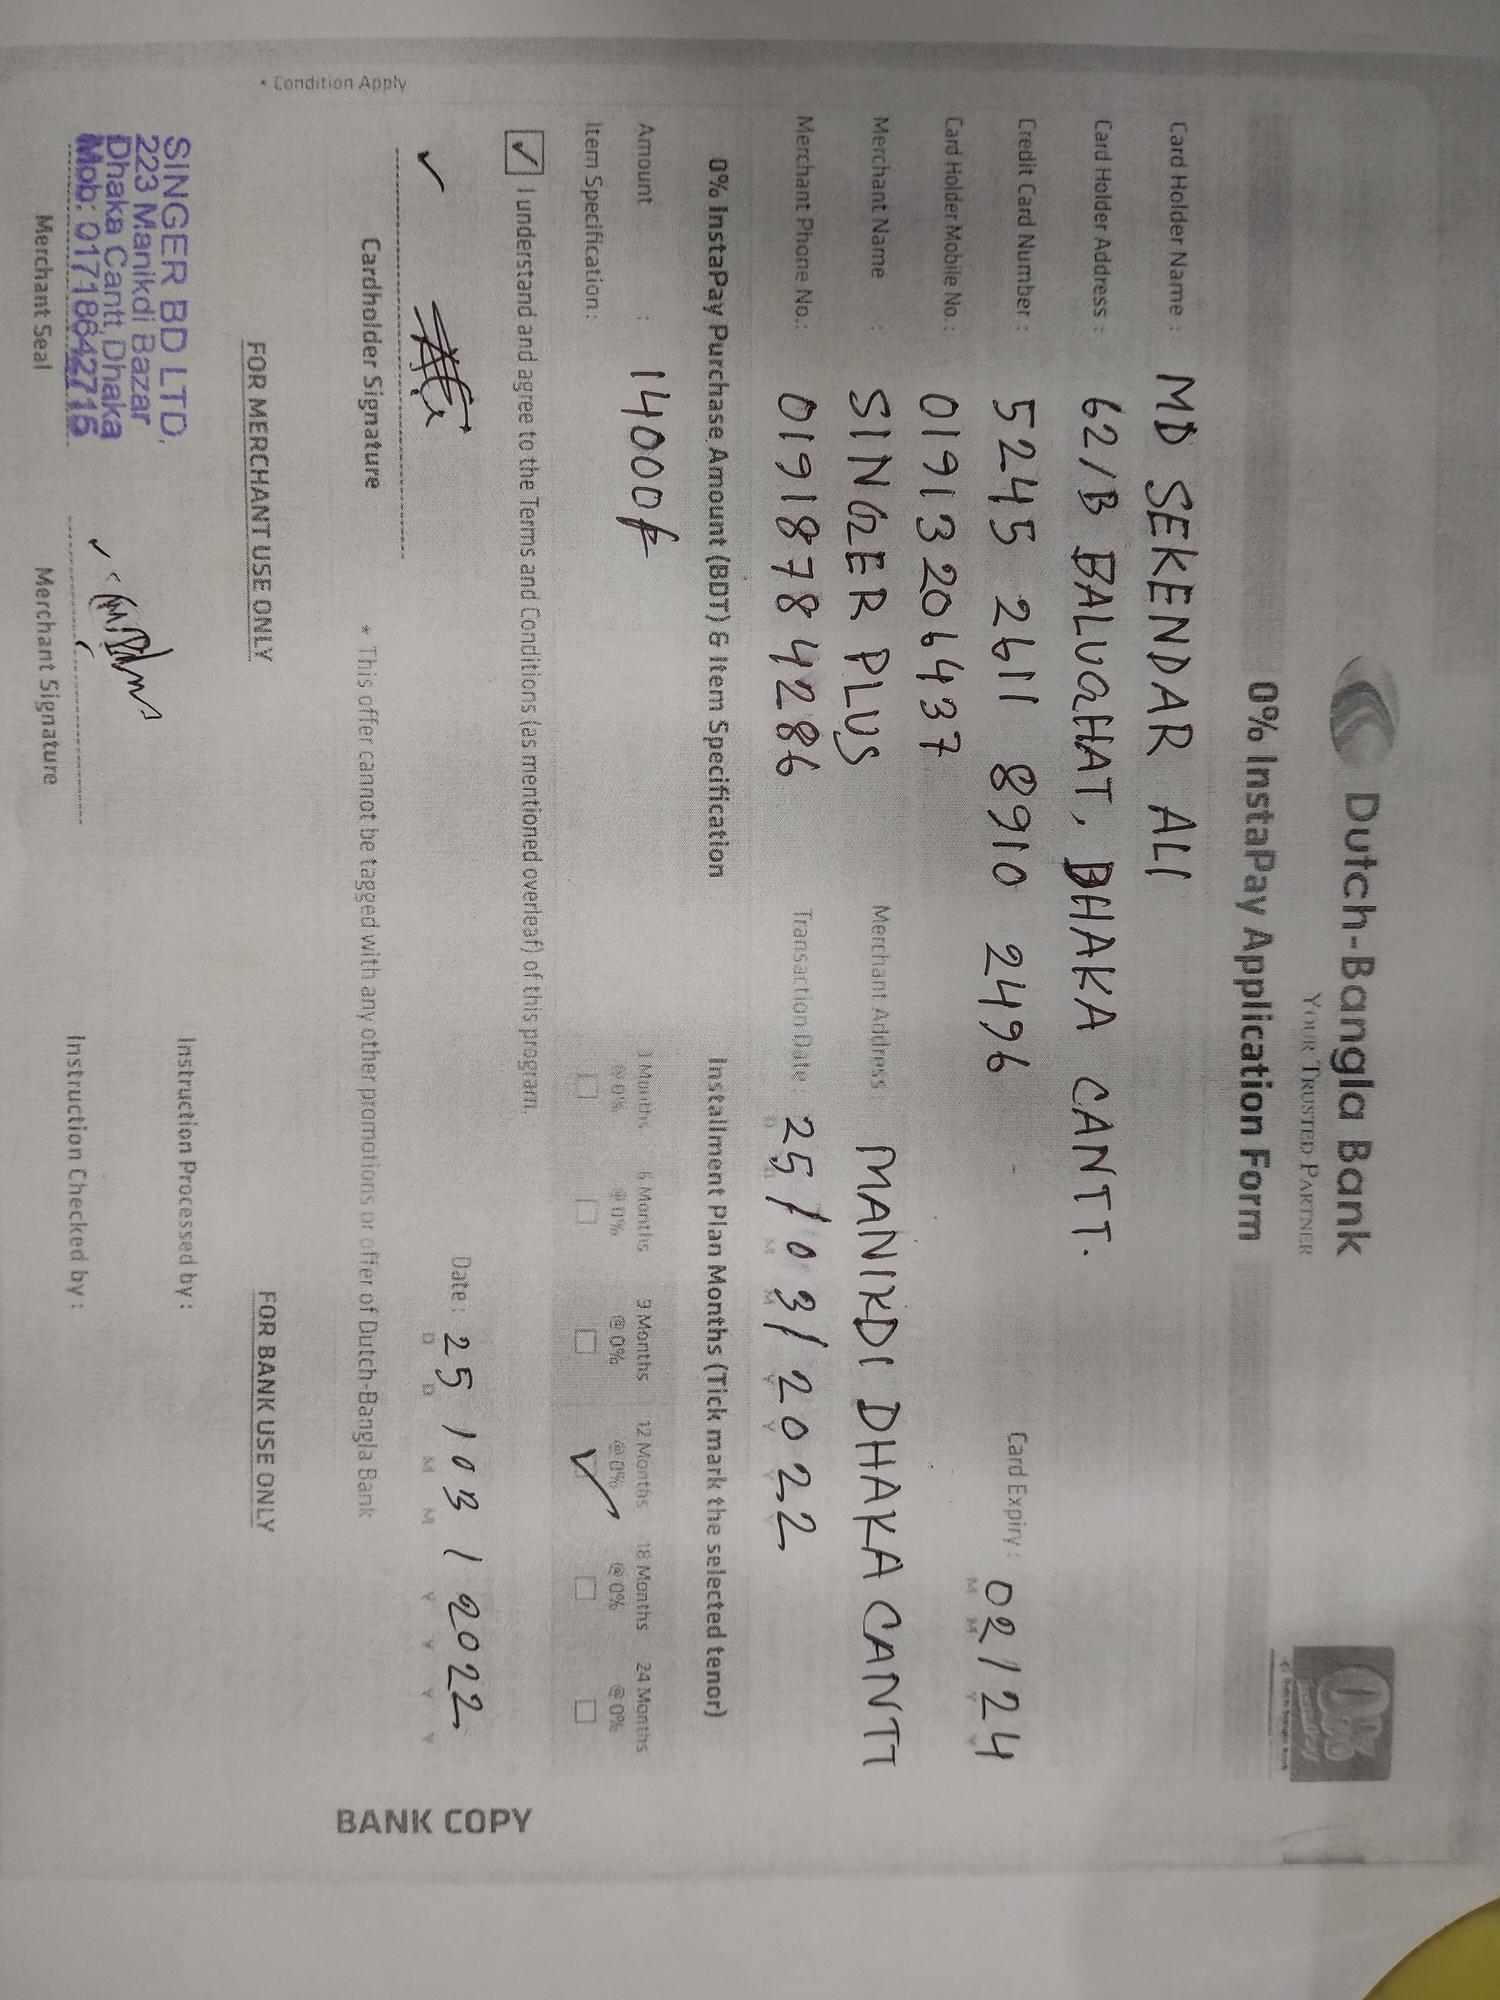 Dutch-Bangla Bank
YOUR TRUSTED PARTNER
0%
0% InstaPay Application Form
Card Holder Name : MD SEKENDAR ALI
Card Holder Address : 62/B BALUGHAT, DHAKA CANTT.
Credit Card Number : 5245 2611 8910 2496 Card Expiry : 02/24
Card Holder Mobile No.: 01913206437
Merchant Name : SINGER PLUS Merchant Address MANIKDI DHAKA CANTT
Merchant Phone No.: 01918784286 Transaction Date : 25/03/2022
0% InstaPay Purchase Amount (BDT) & Item Specification Installment Plan Months (Tick mark the selected tenor)
Amount : 14000/- 3 Months 6 Months 9 Months 12 Months 18 Months 24 Months
@ 0% @ 0% @ 0% @ 0% @ 0% @ 0%
Item Specification : ☐ ☐ ☐ ✓ ☐ ☐
☑ I understand and agree to the Terms and Conditions (as mentioned overleaf) of this program.
Date : 25/03/2022
D D M M Y Y Y Y
Cardholder Signature * This offer cannot be tagged with any other promotions or offer of Dutch-Bangla Bank
* Condition Apply
BANK COPY
FOR MERCHANT USE ONLY FOR BANK USE ONLY
SINGER BD LTD.
223 Manikdi Bazar
Dhaka Cantt, Dhaka
Mob: 01718642716
Merchant Seal Merchant Signature
Instruction Processed by :
Instruction Checked by :